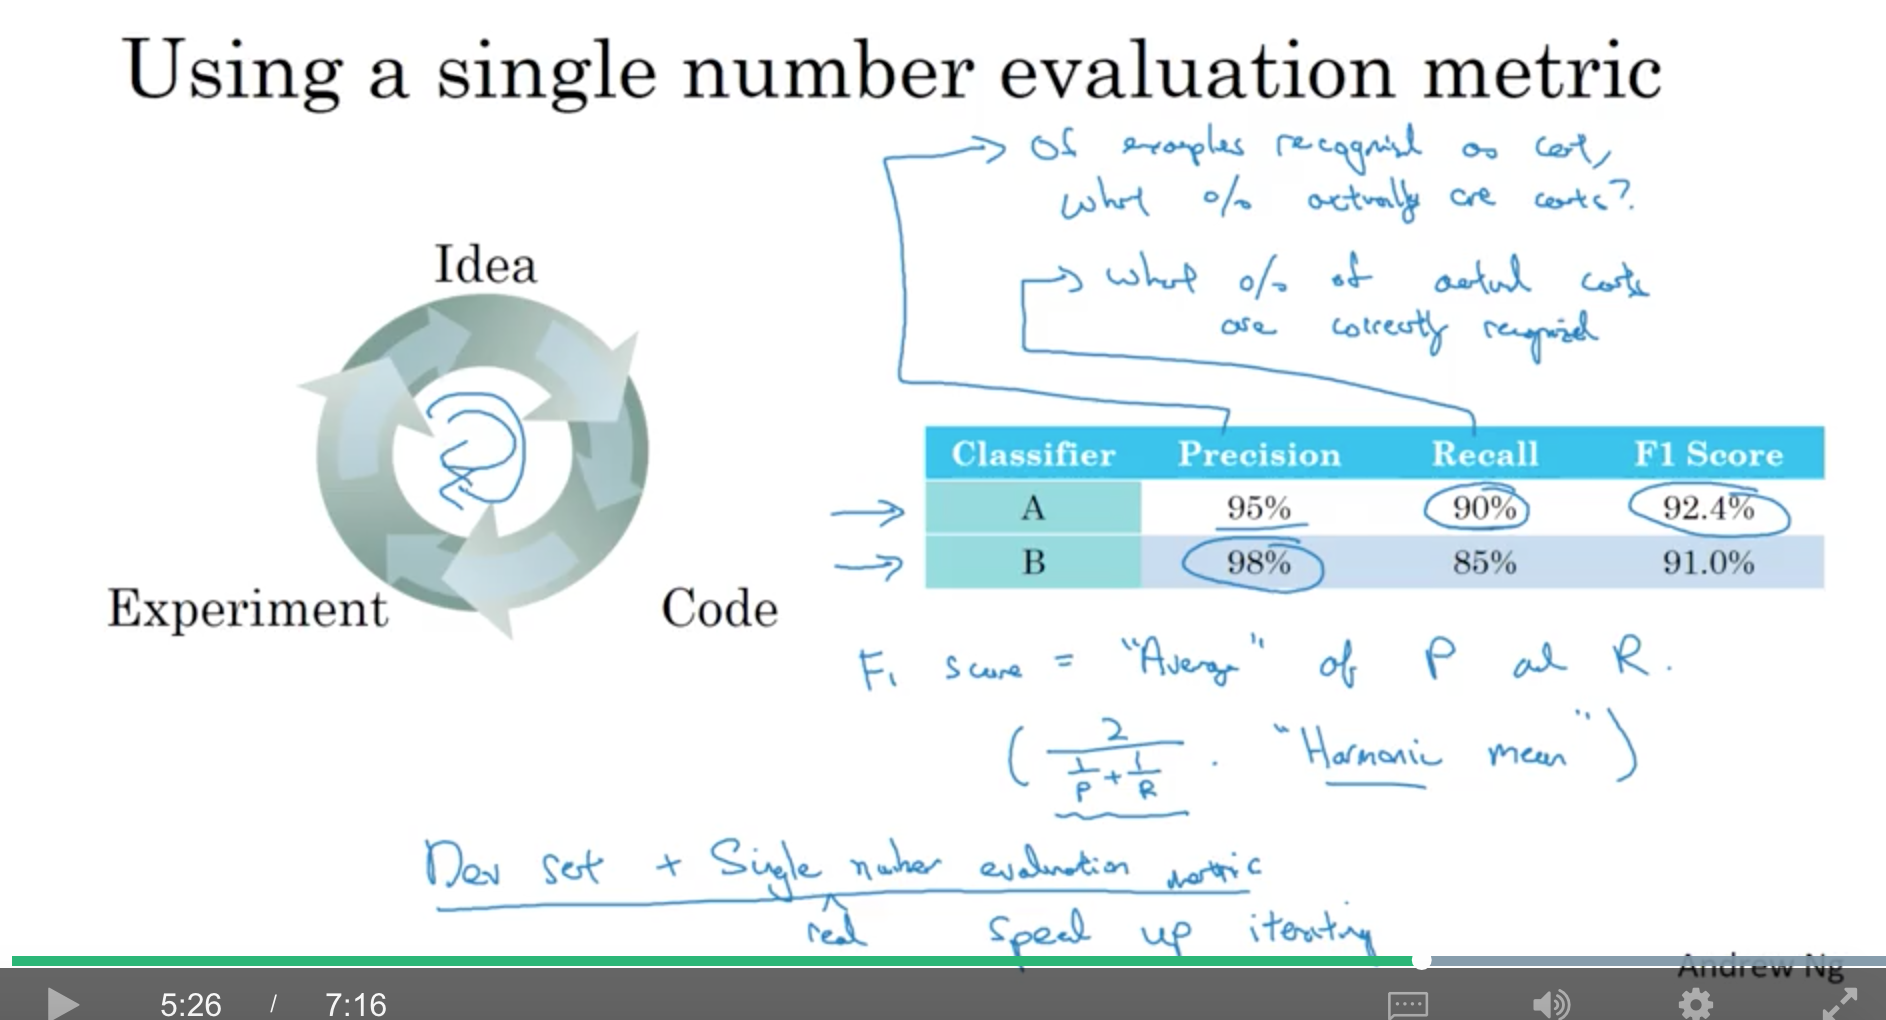 Using a single number evaluation metric
Of examples recognized as cat,
what % actually are cats?
what % of actual cats
are correctly recognized
Idea
Experiment
Code
Classifier Precision Recall F1 Score
A 95% 90% 92.4%
B 98% 85% 91.0%
F1 score = "Average" of P and R.
( 2 / (1/P + 1/R) . "Harmonic mean" )
Dev set + Single number evaluation metric
real speed up iterating
Andrew Ng
5:26 / 7:16